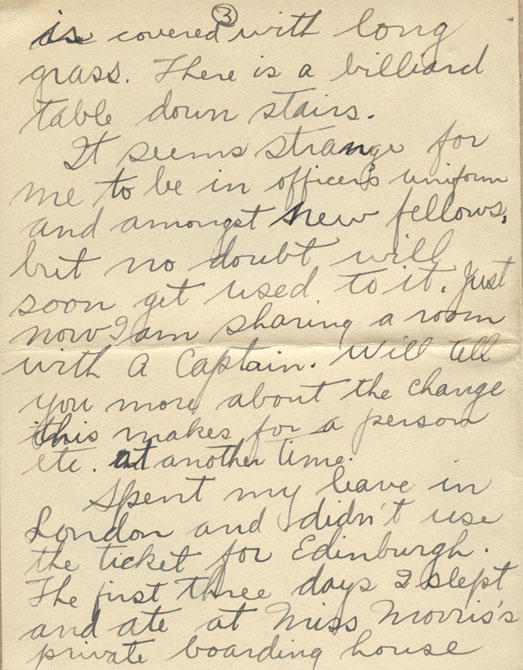 3
is covered with long
grass. There is a billiard
table down stairs.
It seems strange for
me to be in officer's uniform
and amongst new fellows,
but no doubt will
soon get used to it. Just
now I am sharing a room
with a Captain. Will tell
you more about the change
this makes for a person
etc. at another time.
Spent my leave in
London and didn't use
the ticket for Edinburgh.
The first three days I slept
and ate at Miss Morris's
private boarding house